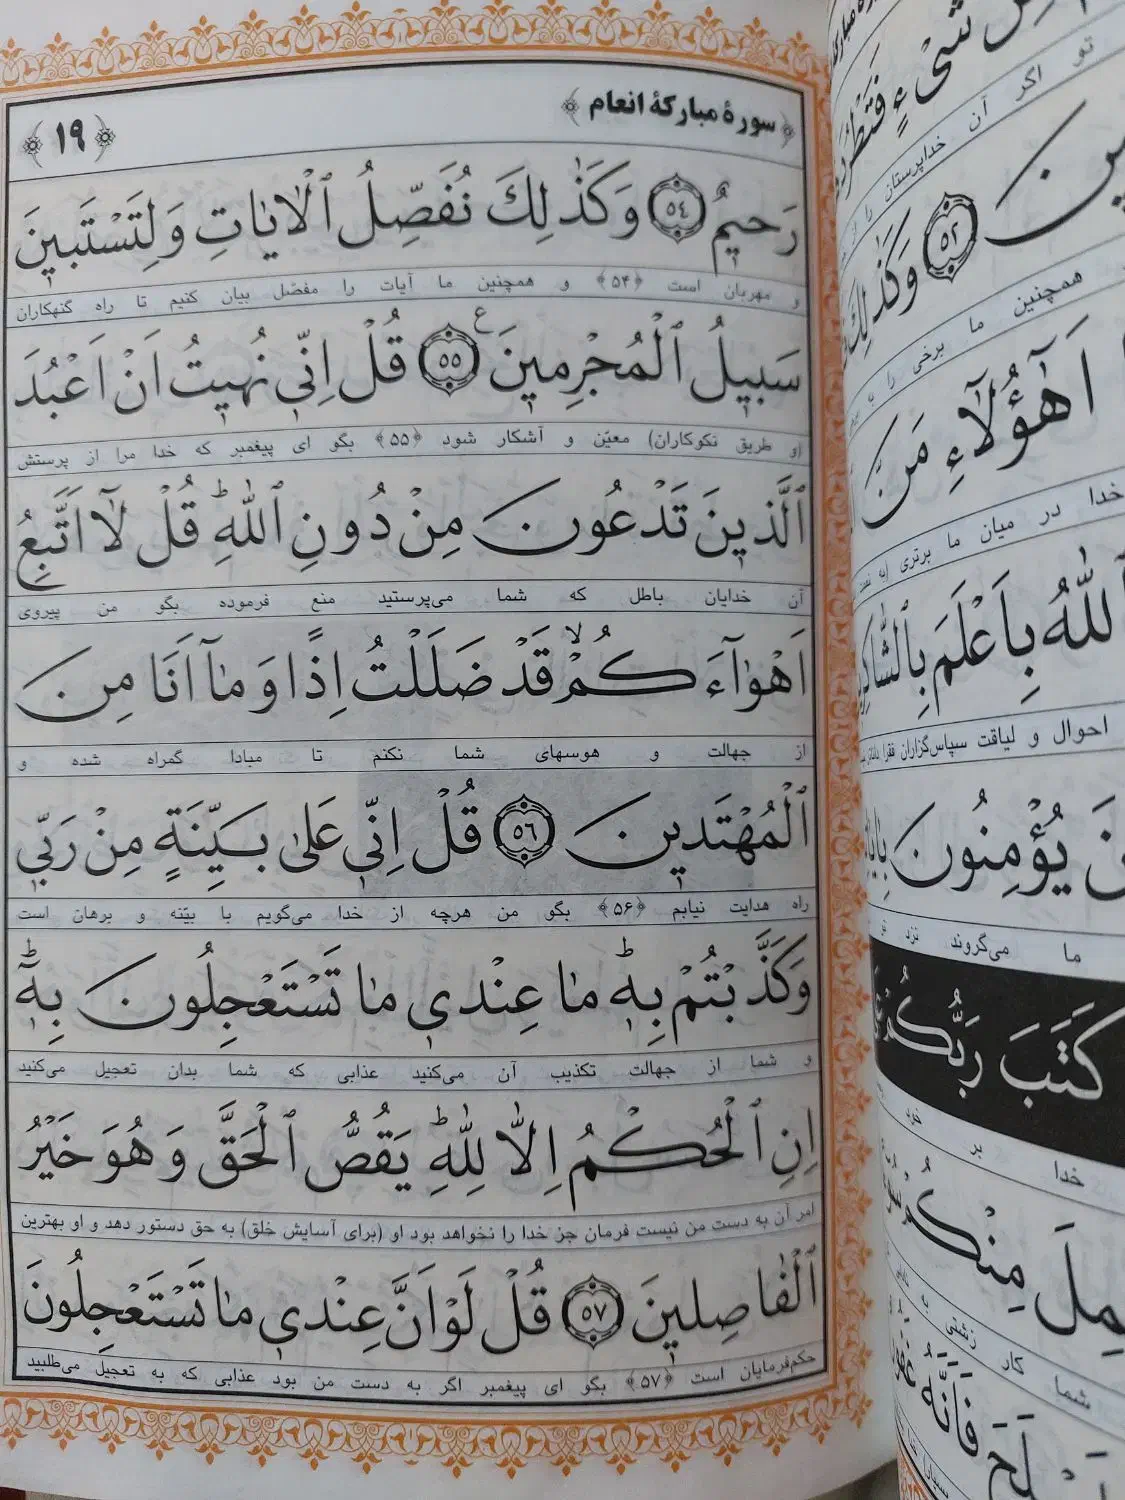 سورهٔ مبارکهٔ انعام
۱۹
رَحیمٌ ﴿٥٤﴾ وَکَذٰلِكَ نُفَصِّلُ ٱلْاٰیاتِ وَلِتَسْتَبینَ
و مهربان است ﴿۵۴﴾ و همچنین ما آیات را مفصّل بیان کنیم تا راه گنهکاران
سَبیلُ ٱلْمُجْرِمینَ ﴿٥٥﴾ ع قُلْ اِنّی نُهیتُ اَنْ اَعْبُدَ
(و طریق نکوکاران) معیّن و آشکار شود ﴿۵۵﴾ بگو ای پیغمبر که خدا مرا از پرستش
ٱلَّذینَ تَدْعُونَ مِنْ دُونِ ٱللّٰهِ ؕ قُلْ لآ اَتَّبِعُ
آن خدایان باطل که شما می‌پرستید منع فرموده بگو من پیروی
اَهْوآءَکُمْ ۙ قَدْ ضَلَلْتُ اِذًا وَ مآ اَنَا مِنَ
از جهالت و هوسهای شما نکنم تا مبادا گمراه شده و
ٱلْمُهْتَدینَ ﴿٥٦﴾ قُلْ اِنّی عَلٰی بَیِّنَةٍ مِنْ رَبّی
راه هدایت نیابم ﴿۵۶﴾ بگو من هرچه از خدا می‌گویم با بیّنه و برهان است
وَکَذَّبْتُمْ بِهٖ ؕ ما عِنْدی ما تَسْتَعْجِلُونَ بِهٖ ؕ
و شما از جهالت تکذیب آن می‌کنید عذابی که شما بدان تعجیل می‌کنید
اِنِ ٱلْحُکْمُ اِلّا لِلّٰهِ ؕ یَقُصُّ ٱلْحَقَّ وَ هُوَ خَیْرُ
امر آن به دست من نیست فرمان جز خدا را نخواهد بود او (برای آسایش خلق) به حق دستور دهد و او بهترین
ٱلْفاصِلینَ ﴿٥٧﴾ قُلْ لَوْ اَنَّ عِنْدی ما تَسْتَعْجِلُونَ
حکم‌فرمایان است ﴿۵۷﴾ بگو ای پیغمبر اگر به دست من بود عذابی که به تعجیل می‌طلبید
شَیْءٍ فَتَطْرُدَ
تو اگر آن خداپرستان را
﴿٥٢﴾ وَکَذٰلِكَ
همچنین ما برخی را
اَهٰٓؤُلآءِ مَنَّ
خدا در میان ما برتری
ٱللّٰهُ بِاَعْلَمَ بِٱلشّاکِرینَ
احوال و لیاقت سپاس‌گزاران فقرا
یُؤْمِنُونَ بِاٰیاتِنا
ما می‌گروند نزد تو
کَتَبَ رَبُّکُمْ
خدا بر خود
مِنْکُمْ
شما کار زشتی
فَاَنَّهُ